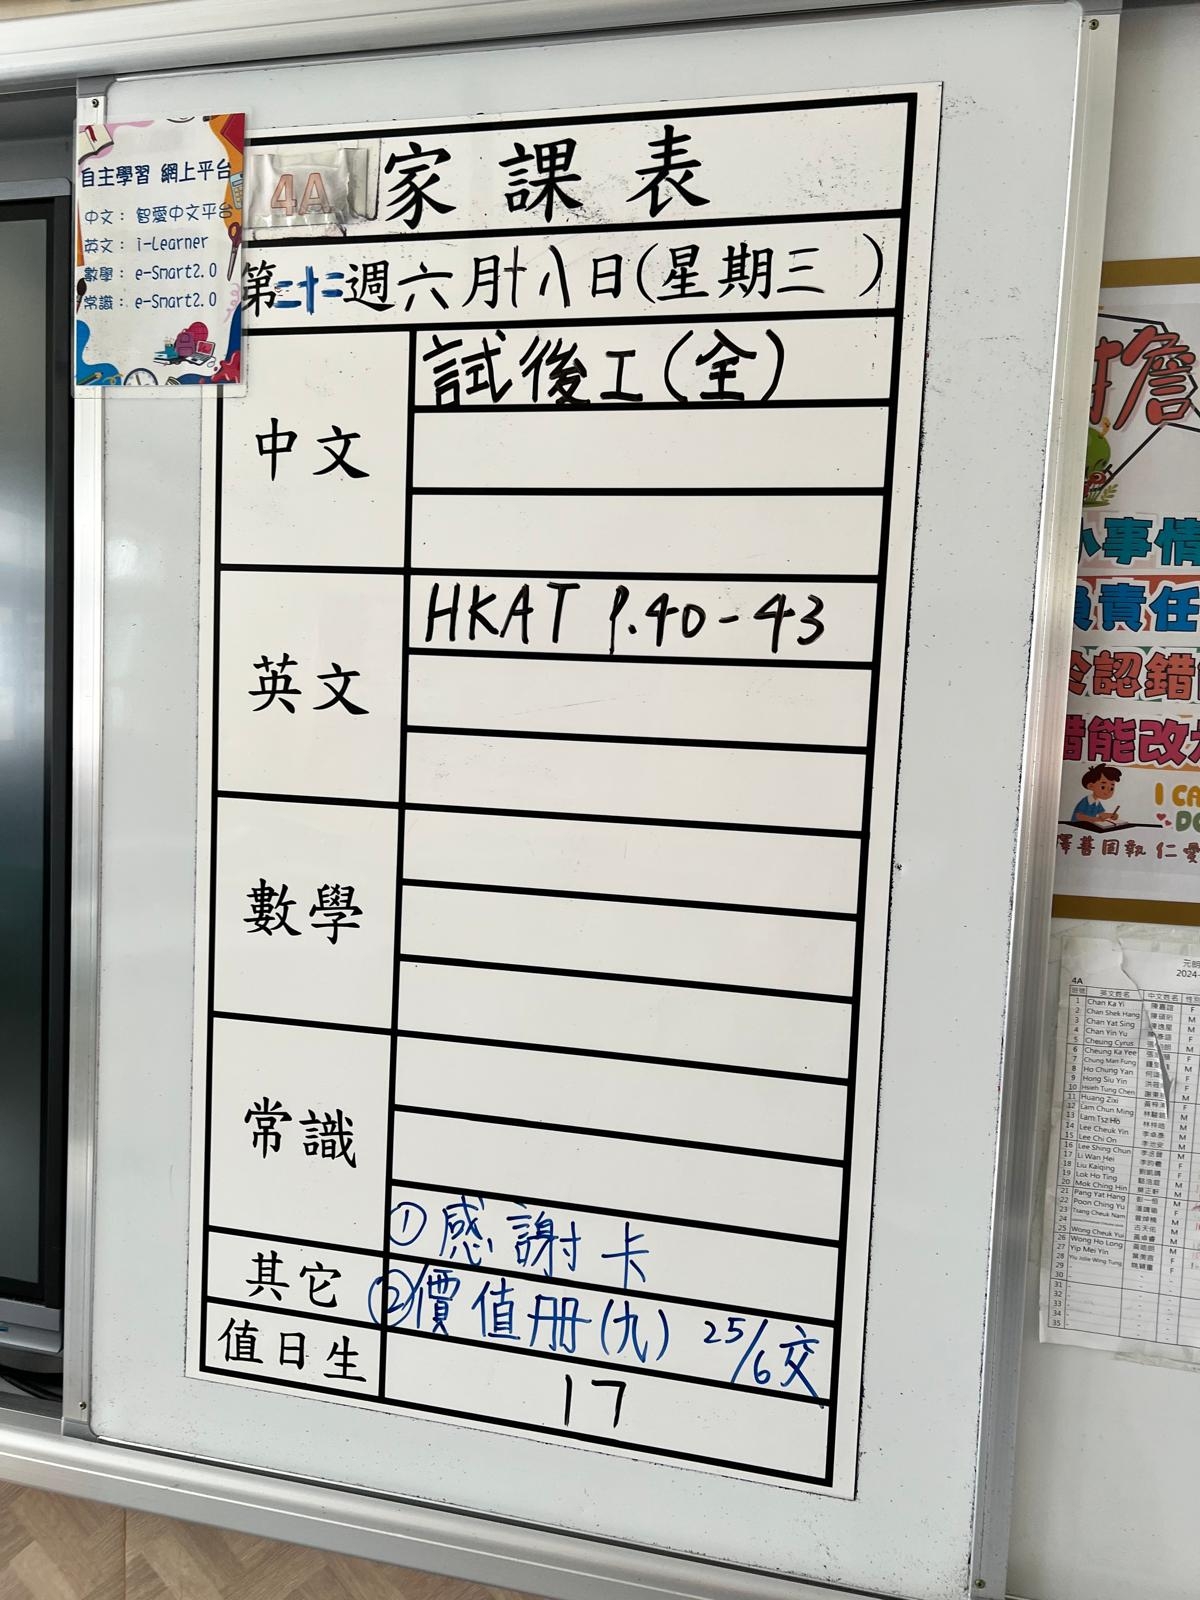 自主學習 網上平台
中文： 智愛中文平台
英文： i-Learner
數學： e-Smart2.0
常識： e-Smart2.0
4A 家課表
第二十二週六月十八日(星期三 )
中文
試後工(全)
英文
HKAT P.40-43
數學
常識
①感謝卡
其它
②價值册(九) 25/6交
值日生
17
事情
負責任
認錯
錯能改
I CA
DO
擇善固執 仁愛
2024-
4A
班號 英文姓名 中文姓名 性別
1 Chan Ka Yi F
2 Chan Shek Hang M
3 Chan Yat Sing M
4 Chan Yin Yu F
5 Cheung Cyrus M
6 Cheung Ka Yee F
7 Chung Man Fung M
8 Ho Chung Yan
9 Hong Siu Yin F
10 Hsieh Tung Chen
11 Huang Zixi F
12 Lam Chun Ming M
13 Lam Tsz Ho M
14 Lee Cheuk Yin M
15 Lee Chi On M
16 Lee Shing Chun M
17 Li Wan Hei
18 Liu Kaiqing F
19 Lok Ho Ting
20 Mok Ching Hin M
21 Pang Yat Hang M
22 Poon Ching Yu F
23 Tsang Cheuk Nam M
24
25 Wong Cheuk Yui
26 Wong Ho Long M
27 Yip Mei Yin F
28 Yiu Jolie Wing Tung F
29
30
31
32
33
34
35